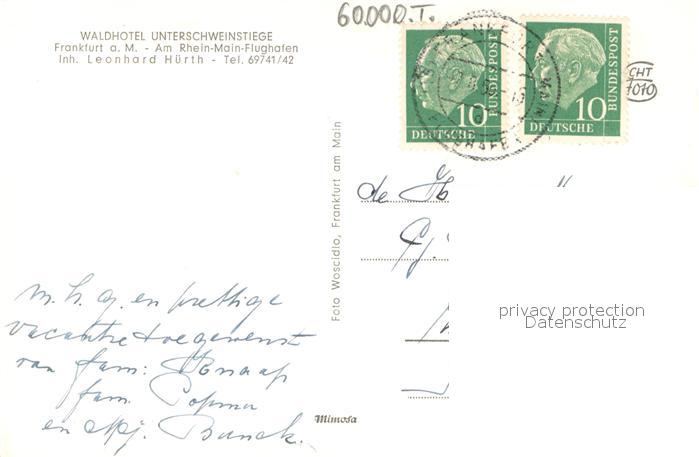 60.000.T.
WALDHOTEL UNTERSCHWEINSTIEGE
Frankfurt a. M. - Am Rhein-Main-Flughafen
Inh. Leonhard Hürth - Tel. 69741/42
10
DEUTSCHE
BUNDESPOST
10
DEUTSCHE
BUNDESPOST
FRANKFURT MAIN
FLUGHAFEN
CHT
7070
Foto Woscidlo, Frankfurt am Main
de H
"
m. h. g. en prettige
vacantie toegewenst
van fam: Knaap
fam. Popma
en Mej. Bunck.
privacy protection
Datenschutz
Mimosa